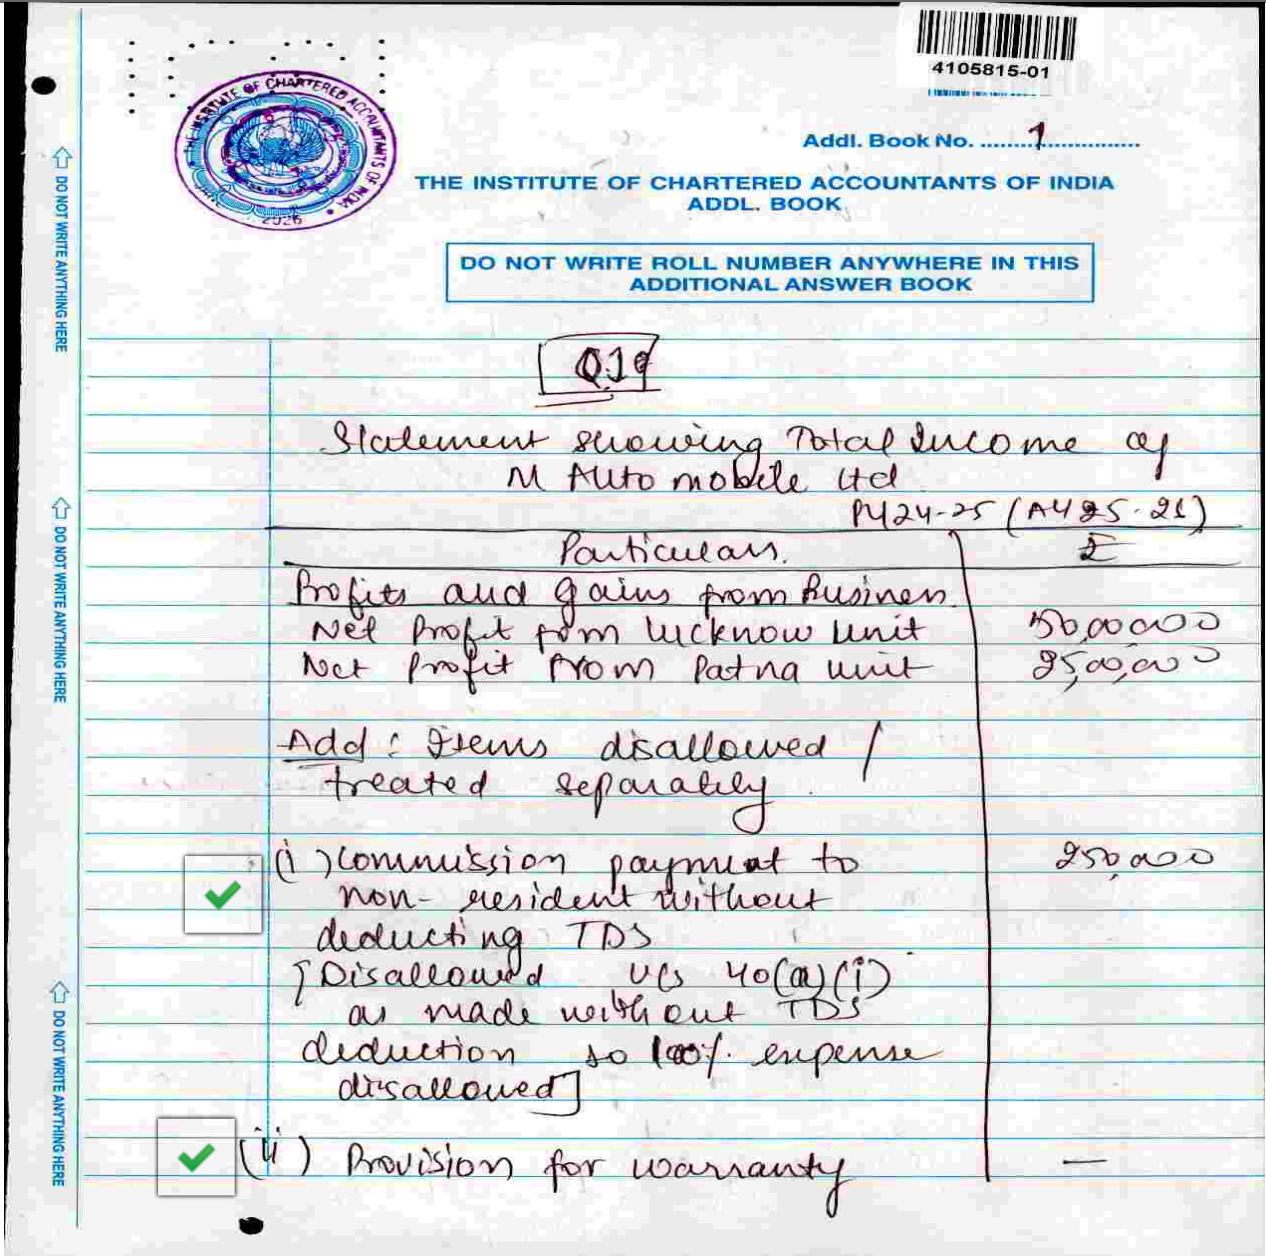 4105815-01
THE INSTITUTE OF CHARTERED ACCOUNTANTS OF INDIA
Addl. Book No. 1
THE INSTITUTE OF CHARTERED ACCOUNTANTS OF INDIA
ADDL. BOOK
DO NOT WRITE ROLL NUMBER ANYWHERE IN THIS
ADDITIONAL ANSWER BOOK
DO NOT WRITE ANYTHING HERE
DO NOT WRITE ANYTHING HERE
DO NOT WRITE ANYTHING HERE
Statement showing Total Income of
M Automobile Ltd
PY 24-25 (AY 25-26)
Particulars. ₹
Profits and gains from Business.
Net Profit from Lucknow Unit 50,00,000
Net Profit From Patna Unit 25,00,000
Add : Items disallowed /
treated separately.
(i) Commission payment to 250,000
non-resident without
deducting TDS
[Disallowed u/s 40(a)(i)
as made without TDS
deduction so 100% expense
disallowed]
(ii) Provision for warranty —